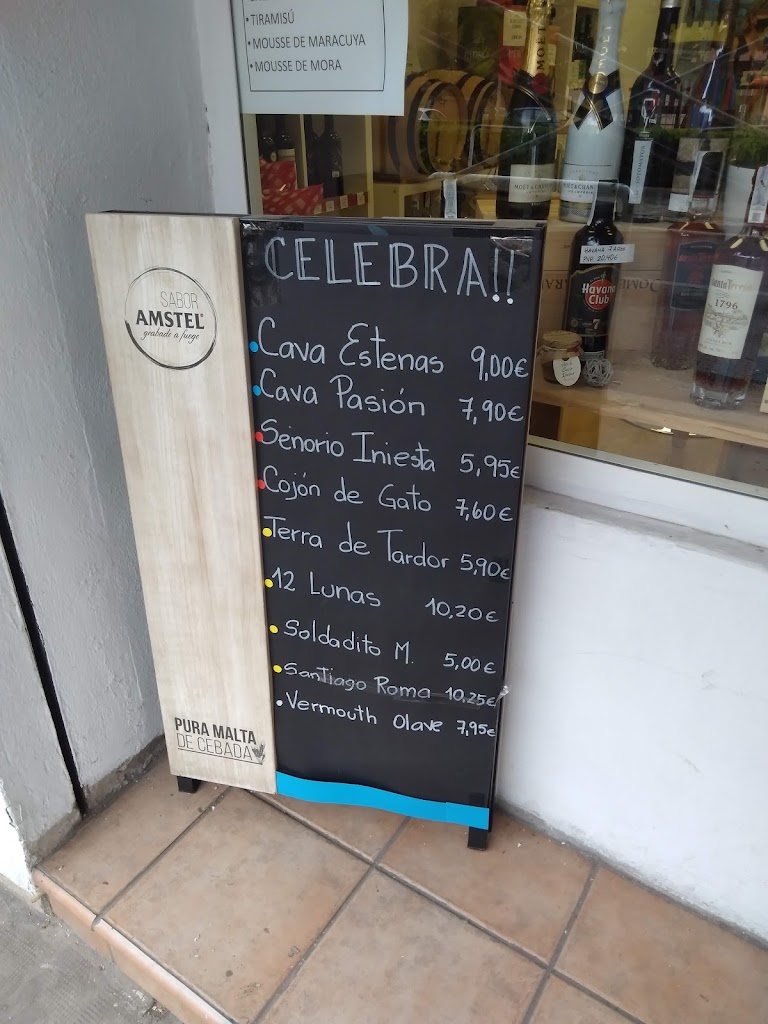 • TIRAMISÚ
• MOUSSE DE MARACUYA
• MOUSSE DE MORA
MOËT
MOËT & CHANDON
HAVANA 7 AÑOS
PVP. 20.40€
Havana Club
7
1796
SABOR
AMSTEL
grabado a fuego
CELEBRA!!
• Cava Estenas 9,00€
• Cava Pasión 7,90€
• Señorio Iniesta 5,95€
• Cojón de Gato 7,60€
• Terra de Tardor 5,90€
• 12 Lunas 10,20€
• Soldadito M. 5,00€
• Santiago Roma 10,25€
• Vermouth Olave 7,95€
PURA MALTA
DE CEBADA